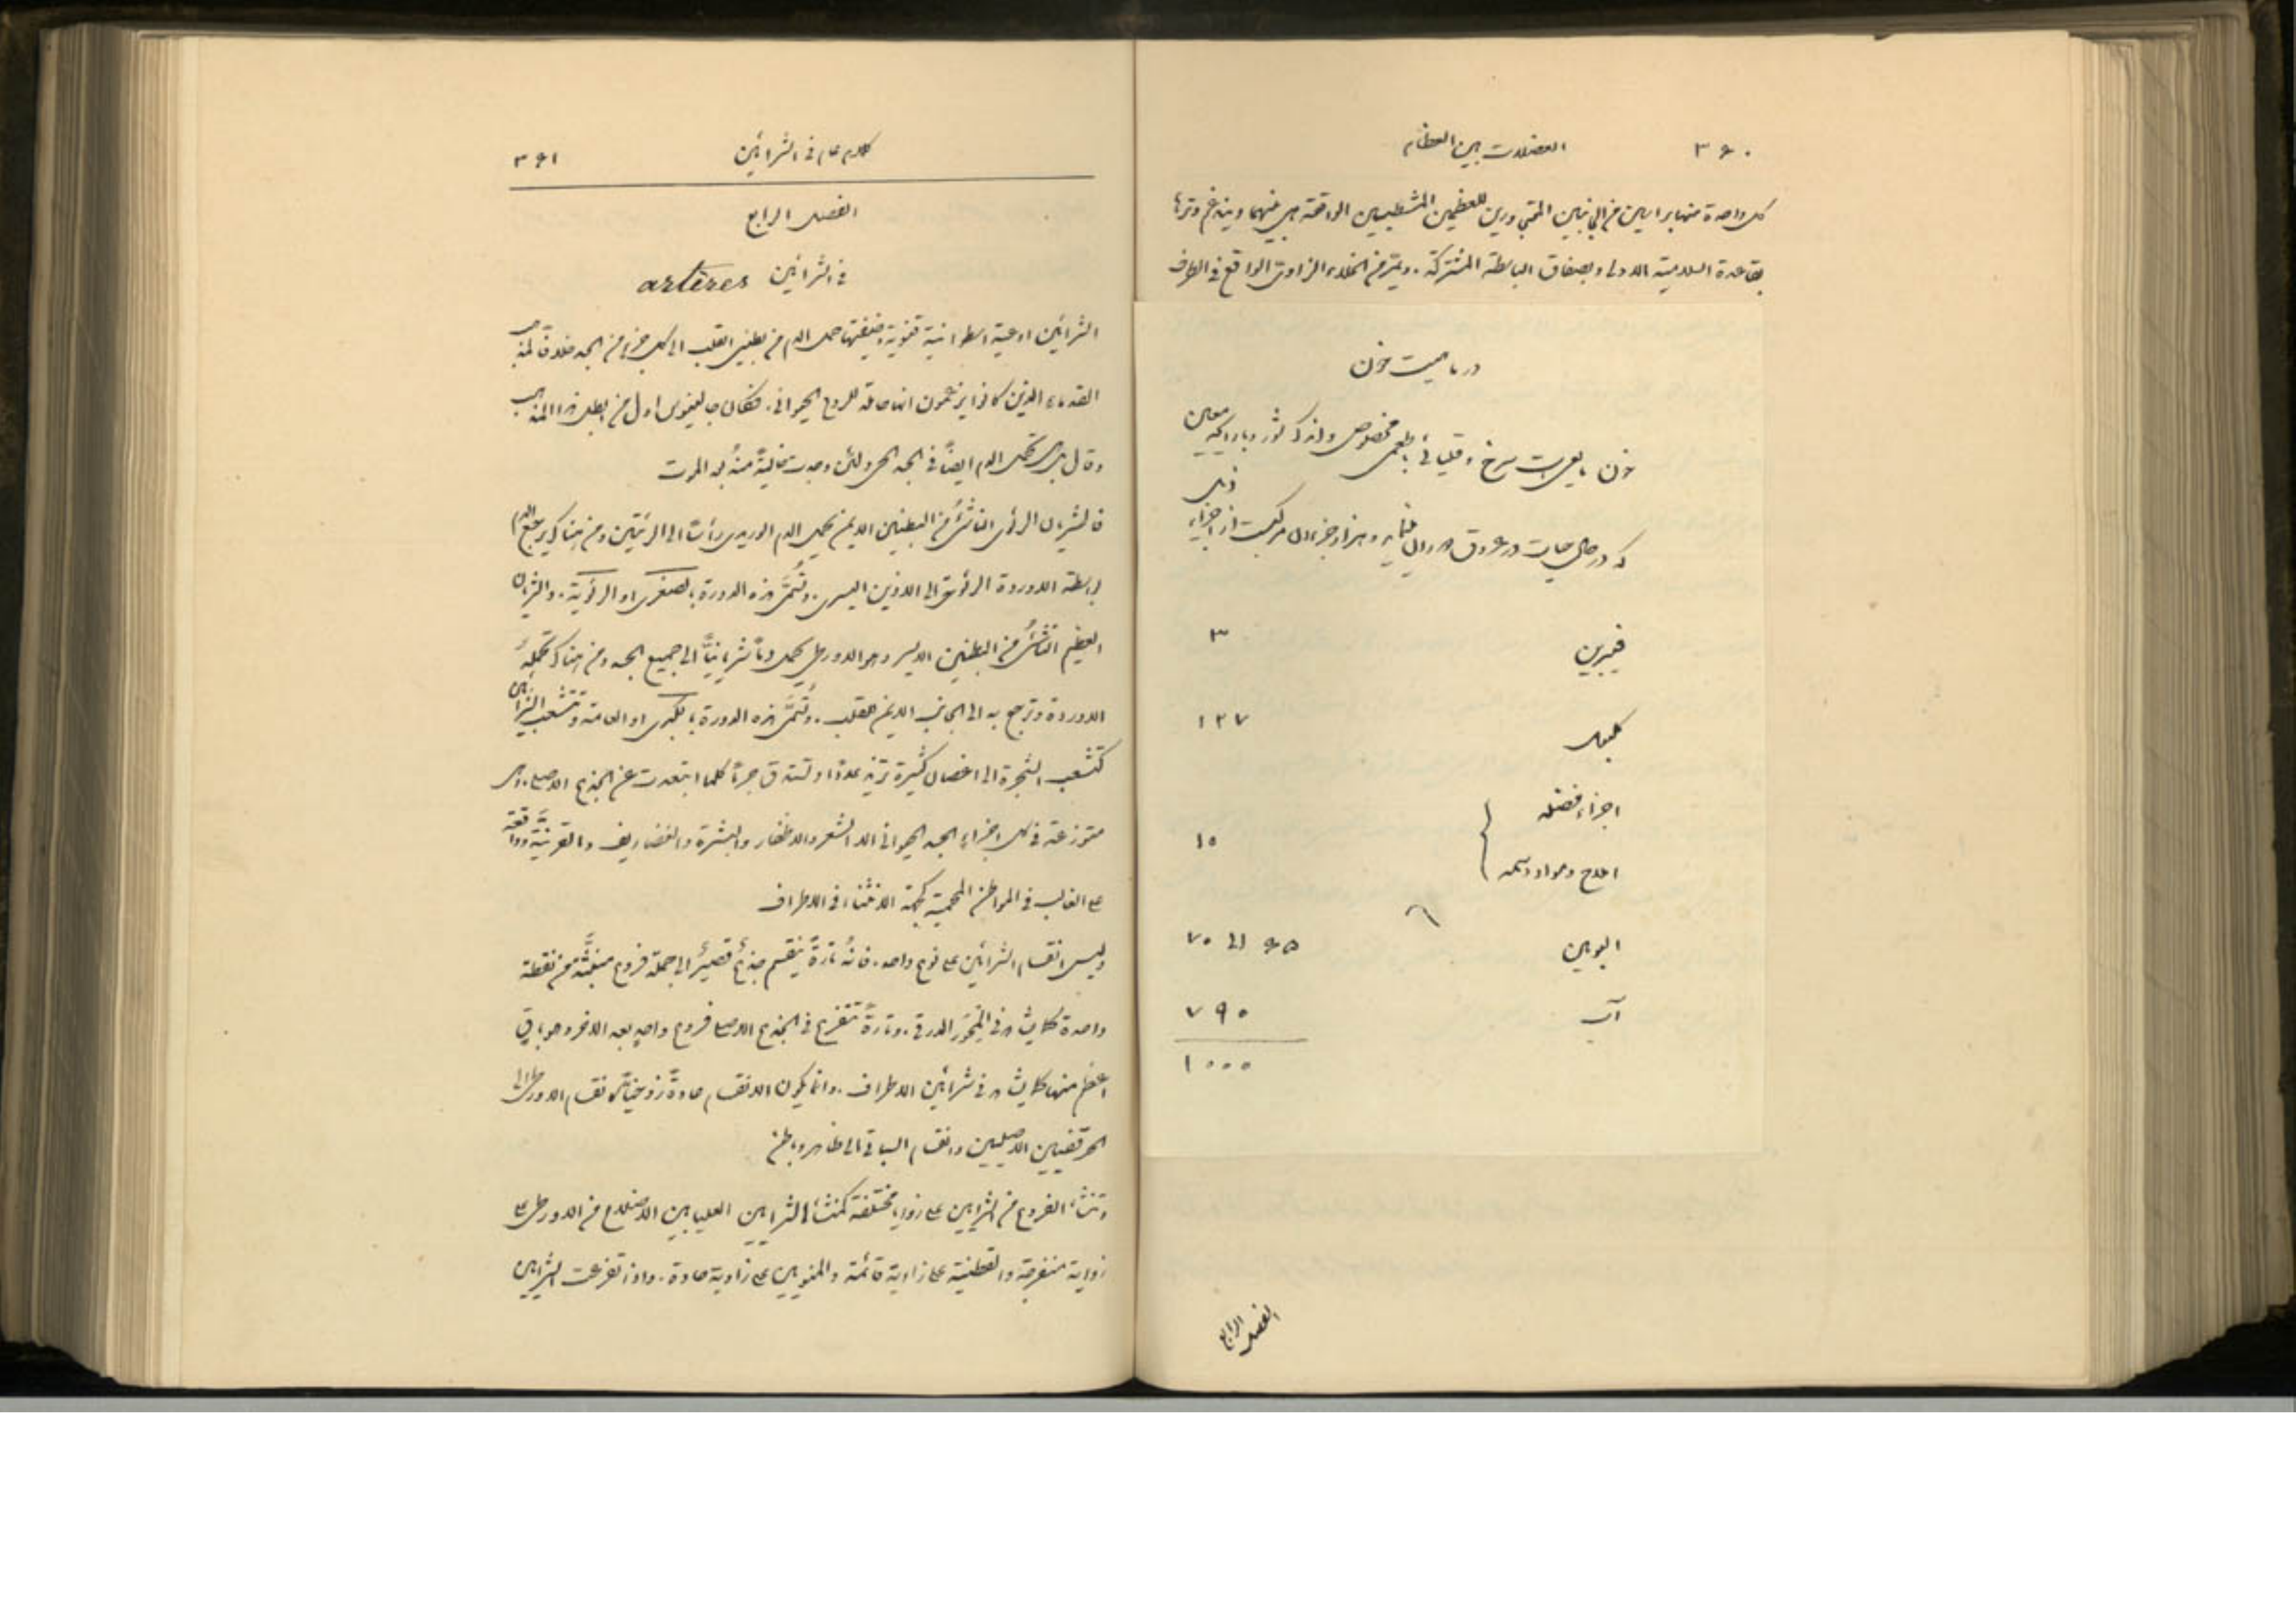 ٣٦٠ العضلات بين العظام
كل واحدة منها براسين من الجانبين المتجاورين للعظمين المشطيين الواقعة هي بينهما ويندغم وترها
بقاعدة السلامية الاولى وبصفاق الباسطة المشتركة. ويمر من الخلاء الزاوى الواقع فى الطرف
در ماهيت خون
خون مايعى است سرخ و قليائى بطعمى مخصوص واندك شور وبارائحه معين
كه در حال حيات در عروق و هزار جزء ان مركبست از اجزاء ذيل
فيبرين ٣
كلبول ١٢٧
اجزاء فضله
١٥
املاح ومواد دسمه
البومين ٦٥ الى ٧٠
آب ٧٩٠
١٠٠٠
الفصل الرابع
كلام عام فى الشرائين ٣٦١
الفصل الرابع
فى الشرائين artères
الشرائين اوعية اسطوانية قنوية وظيفتها حمل الدم من بطينى القلب الى كل جزء من الجسد خلافاً لمذهب
القدماء الذين كانوا يزعمون انها حاملة للروح الحيوانى. فكان جالينوس اول من ابطل هذا المذهب
وقال بل هى تحمل الدم ايضاً فى الجسد الحى ولئن وجدت خاليةً منهُ بعد الموت
فالشريان الرئوى الناشئ من البطين الايمن يحمل الدم الوريدى رأساً الى الرئتين ومن هناك يرجع الدم
بواسطة الاوردة الرئوية الى الاذين اليسرى. وتُسمَّى هذه الدورة بالصغرى او الرئوية. والشريان
العظيم الناشئُ من البطين الايسر وهو الاورطى يحمل دماً شريانيًّا الى جميع الجسد ومن هناك تحملهُ
الاوردة وترجع به الى الجانب الايمن للقلب. وتُسمَّى هذه الدورة بالكبرى او العامة وتتشعب الشرائين
كتشعب الشجرة الى اغصان كثيرة تزيد عددًا وتستدق جرماً كلما ابتعدت عن الجذع الاصلى. وهى
متوزعة فى كل اجزاء الجسد الحيوانى الا الشعر والاظفار والبشرة والغضاريف والقرنيَّة وواقعة
على الغالب فى المواطن المحمية كجهة الانثناء فى الاطراف
وليس انقسام الشرائين على نوع واحد. فانهُ تارةً ينقسم جذعٌ قصيرٌ الى جملة فروع منبعثة من نقطة
واحدة كما يشاهد فى المحور الدرقى. وتارةً تتفرع فى الجذع الاصلى فروع واحد بعد الاخر وهو باقٍ
اعظم منها كما يشاهد فى شرائين الاطراف. وانما يكون الانقسام عادةً زوجيًّا كانقسام الاورطى الى
الحرقفيين الاصليين وانقسام السباتى الى ظاهر وباطن
وتنشأ الفروع من الشرايين على زوايا مختلفة كمنشأ الشرايين العليا بين الاضلاع من الاورطى على
زواية منفرجة والقطنية على زاوية قائمة والمنويين على زاوية حادة. واذا تفرعت الشرايين